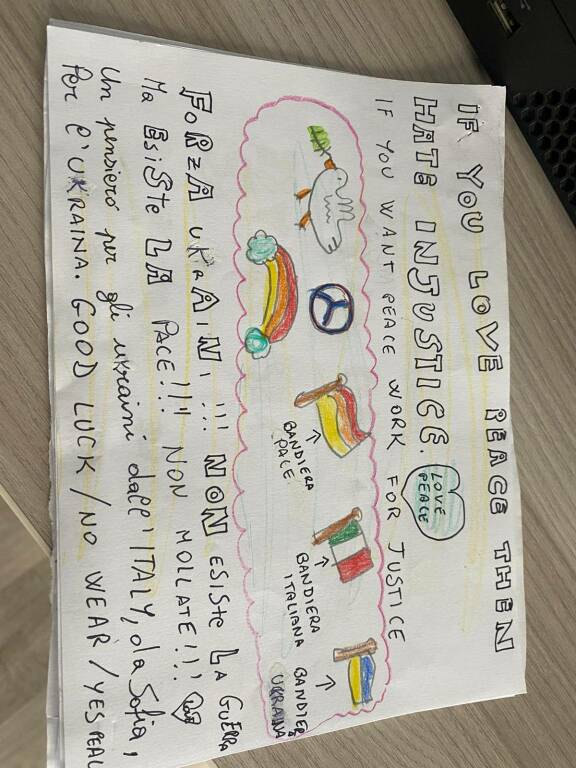 IF YOU LOVE PEACE THEN
HATE INJUSTICE.
LOVE
PEACE
IF YOU WANT PEACE WORK FOR JUSTICE
BANDIERA
PACE
BANDIERA
ITALIANA
BANDIER
UKRAINA
FORZA UKRAINI!!! NON ESISTE LA GUERRA
MA ESISTE LA PACE!!!! NON MOLLATE!!!
Un pensiero per gli ukraini dall'ITALY, da Sofia,
Per l'UKRAINA. GOOD LUCK / NO WEAR / YES